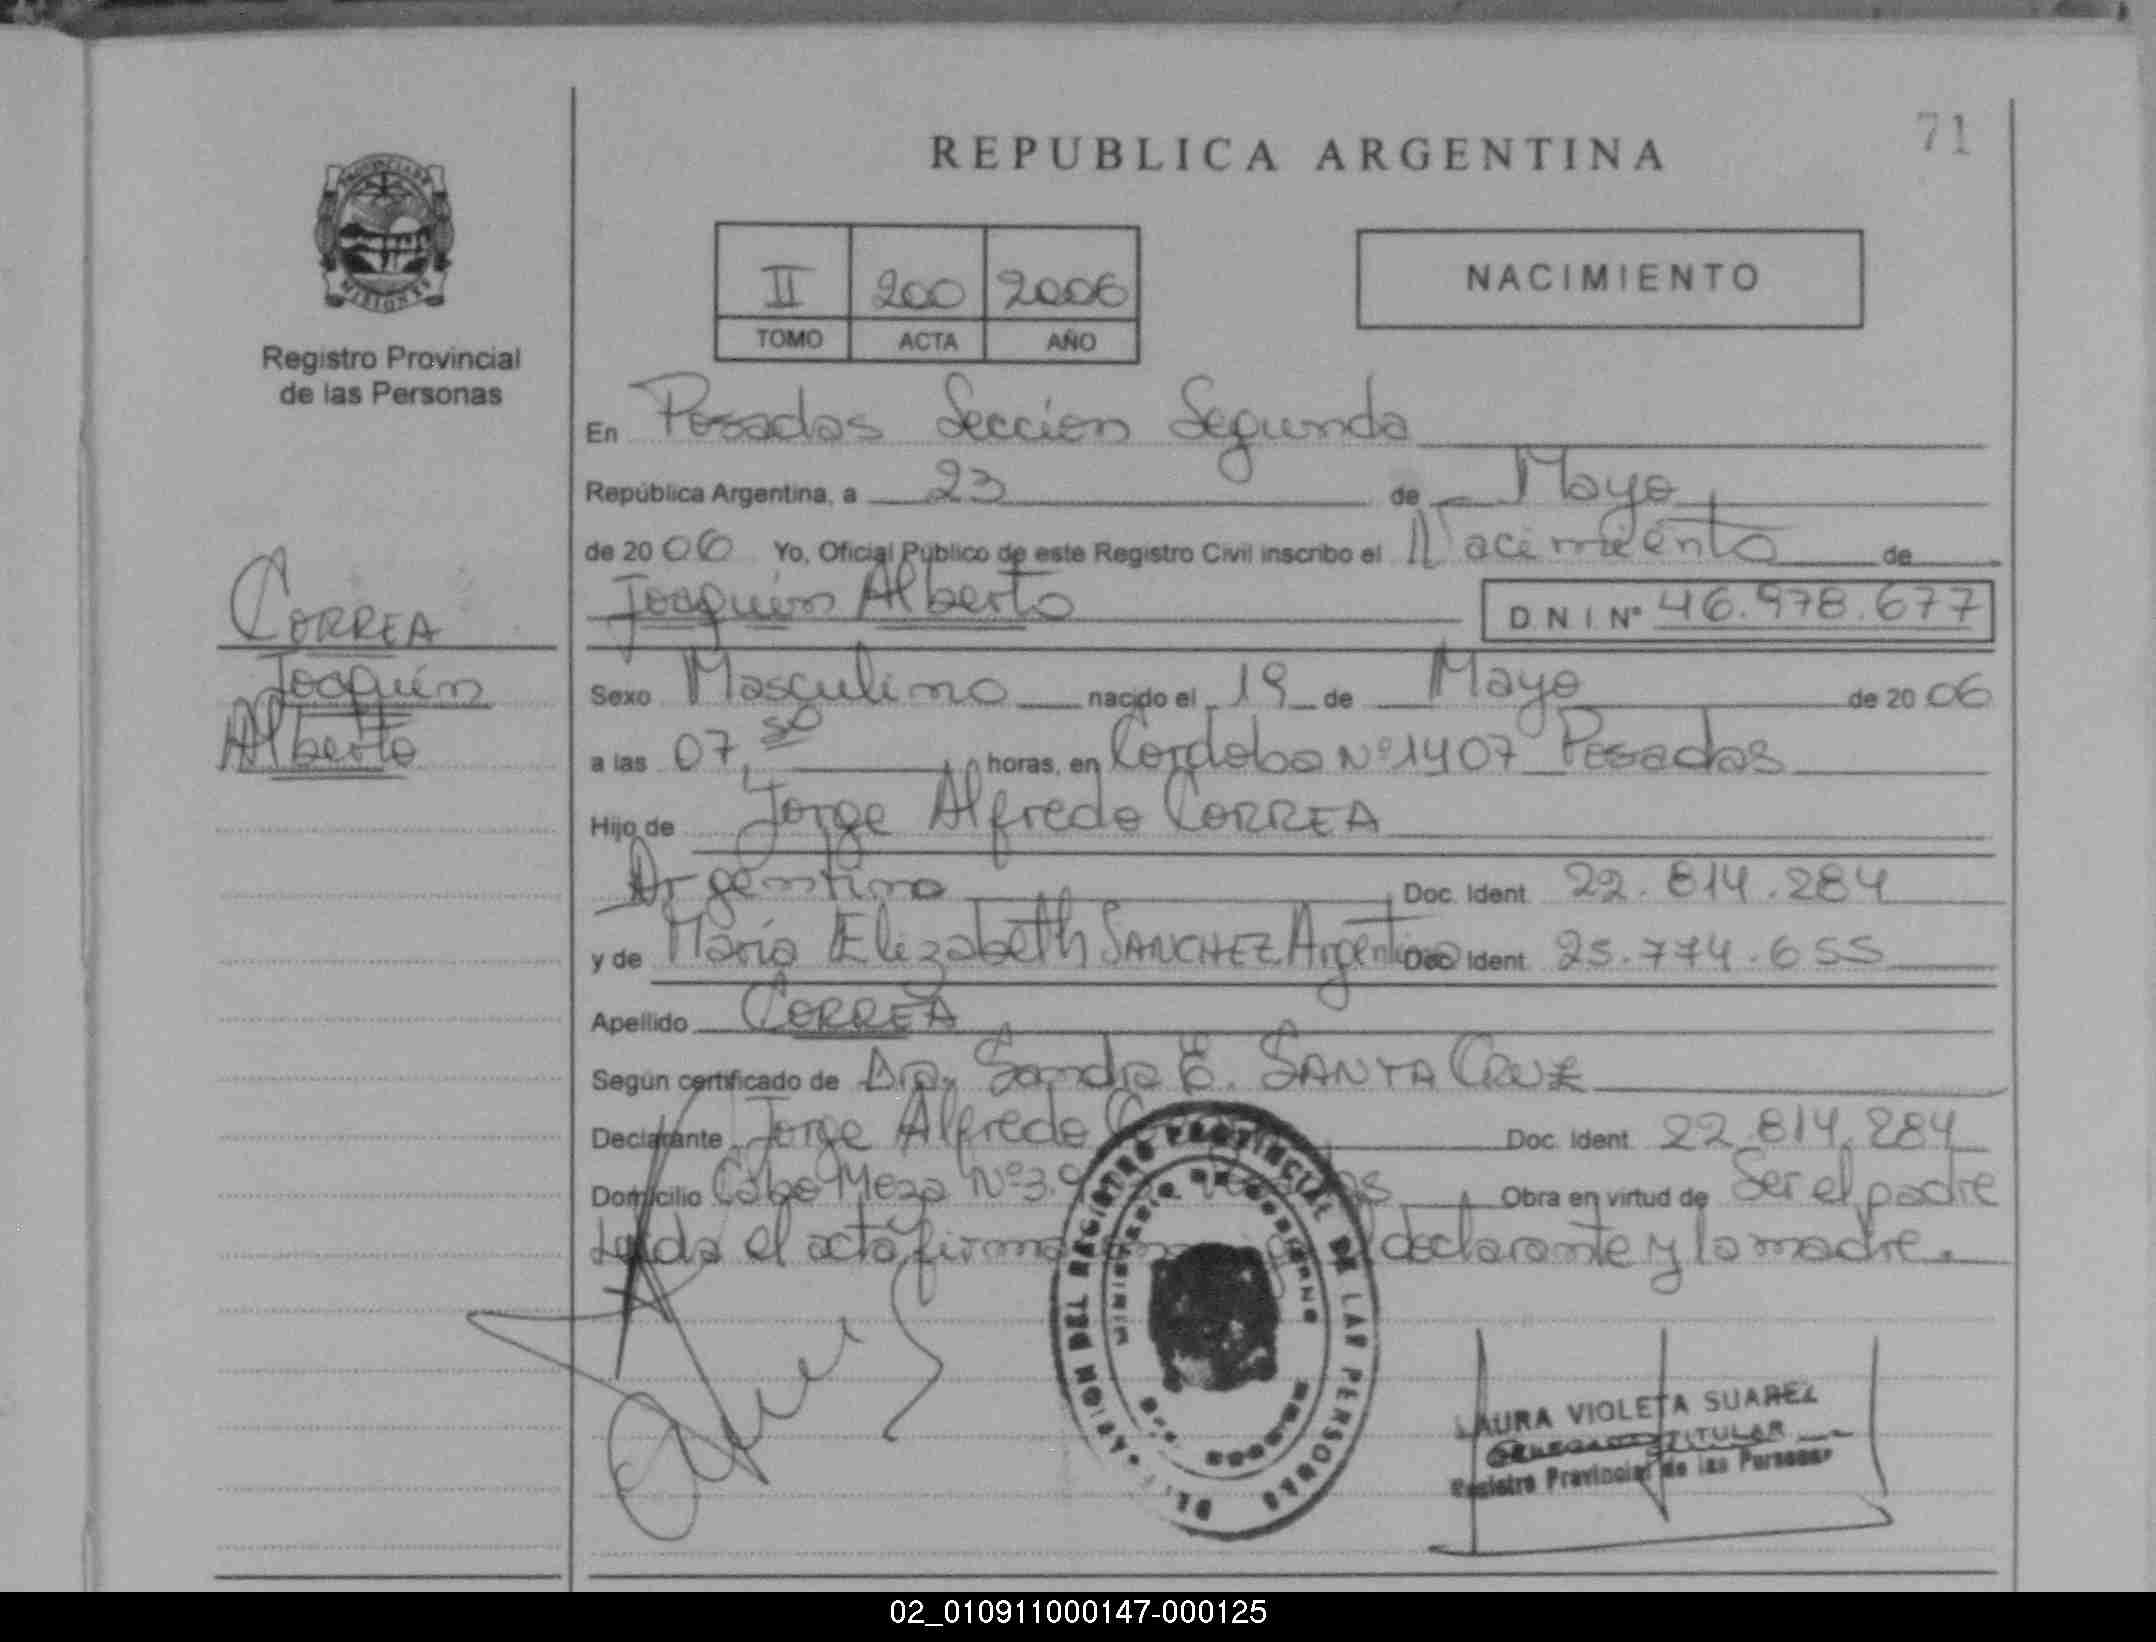 71
REPUBLICA ARGENTINA
PROVINCIA DE
MISIONES
Registro Provincial
de las Personas
II 200 2006
TOMO ACTA AÑO
NACIMIENTO
En Posadas Sección Segunda
República Argentina, a 23 de Mayo
de 2006 Yo, Oficial Público de este Registro Civil inscribo el Nacimiento de
Joaquín Alberto
D N I Nº 46.978.677
CORREA
Joaquín
Alberto
Sexo Masculino nacido el 19 de Mayo de 2006
a las 07,50 horas, en Cordoba Nº 1407 Posadas
Hijo de Jorge Alfredo CORREA
Argentino Doc. Ident. 22.814.284
y de María Elizabeth SANCHEZ Argentina Doc Ident. 25.774.655
Apellido CORREA
Según certificado de Dra. Sandra E. SANTA CRUZ
Declarante Jorge Alfredo Doc. Ident. 22.814.284
Domicilio Cabo Meza Nº 3.9 Obra en virtud de Ser el padre
Leída el acta declarante y la madre.
DEL REGISTRO PROVINCIAL DE LAS PERSONAS
MINISTERIO DE GOBIERNO
LAURA VIOLETA SUAREZ
TITULAR
Registro Provincial de las Personas
02_010911000147-000125